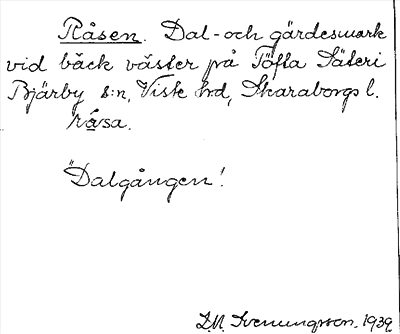 Råsen. Dal- och gärdesmark
vid bäck väster på Töfta Säteri
Bjärby s:n, Viste hrd, Skaraborgs l.
råsa.
"Dalgången!
D.N. Svenungsson. 1939